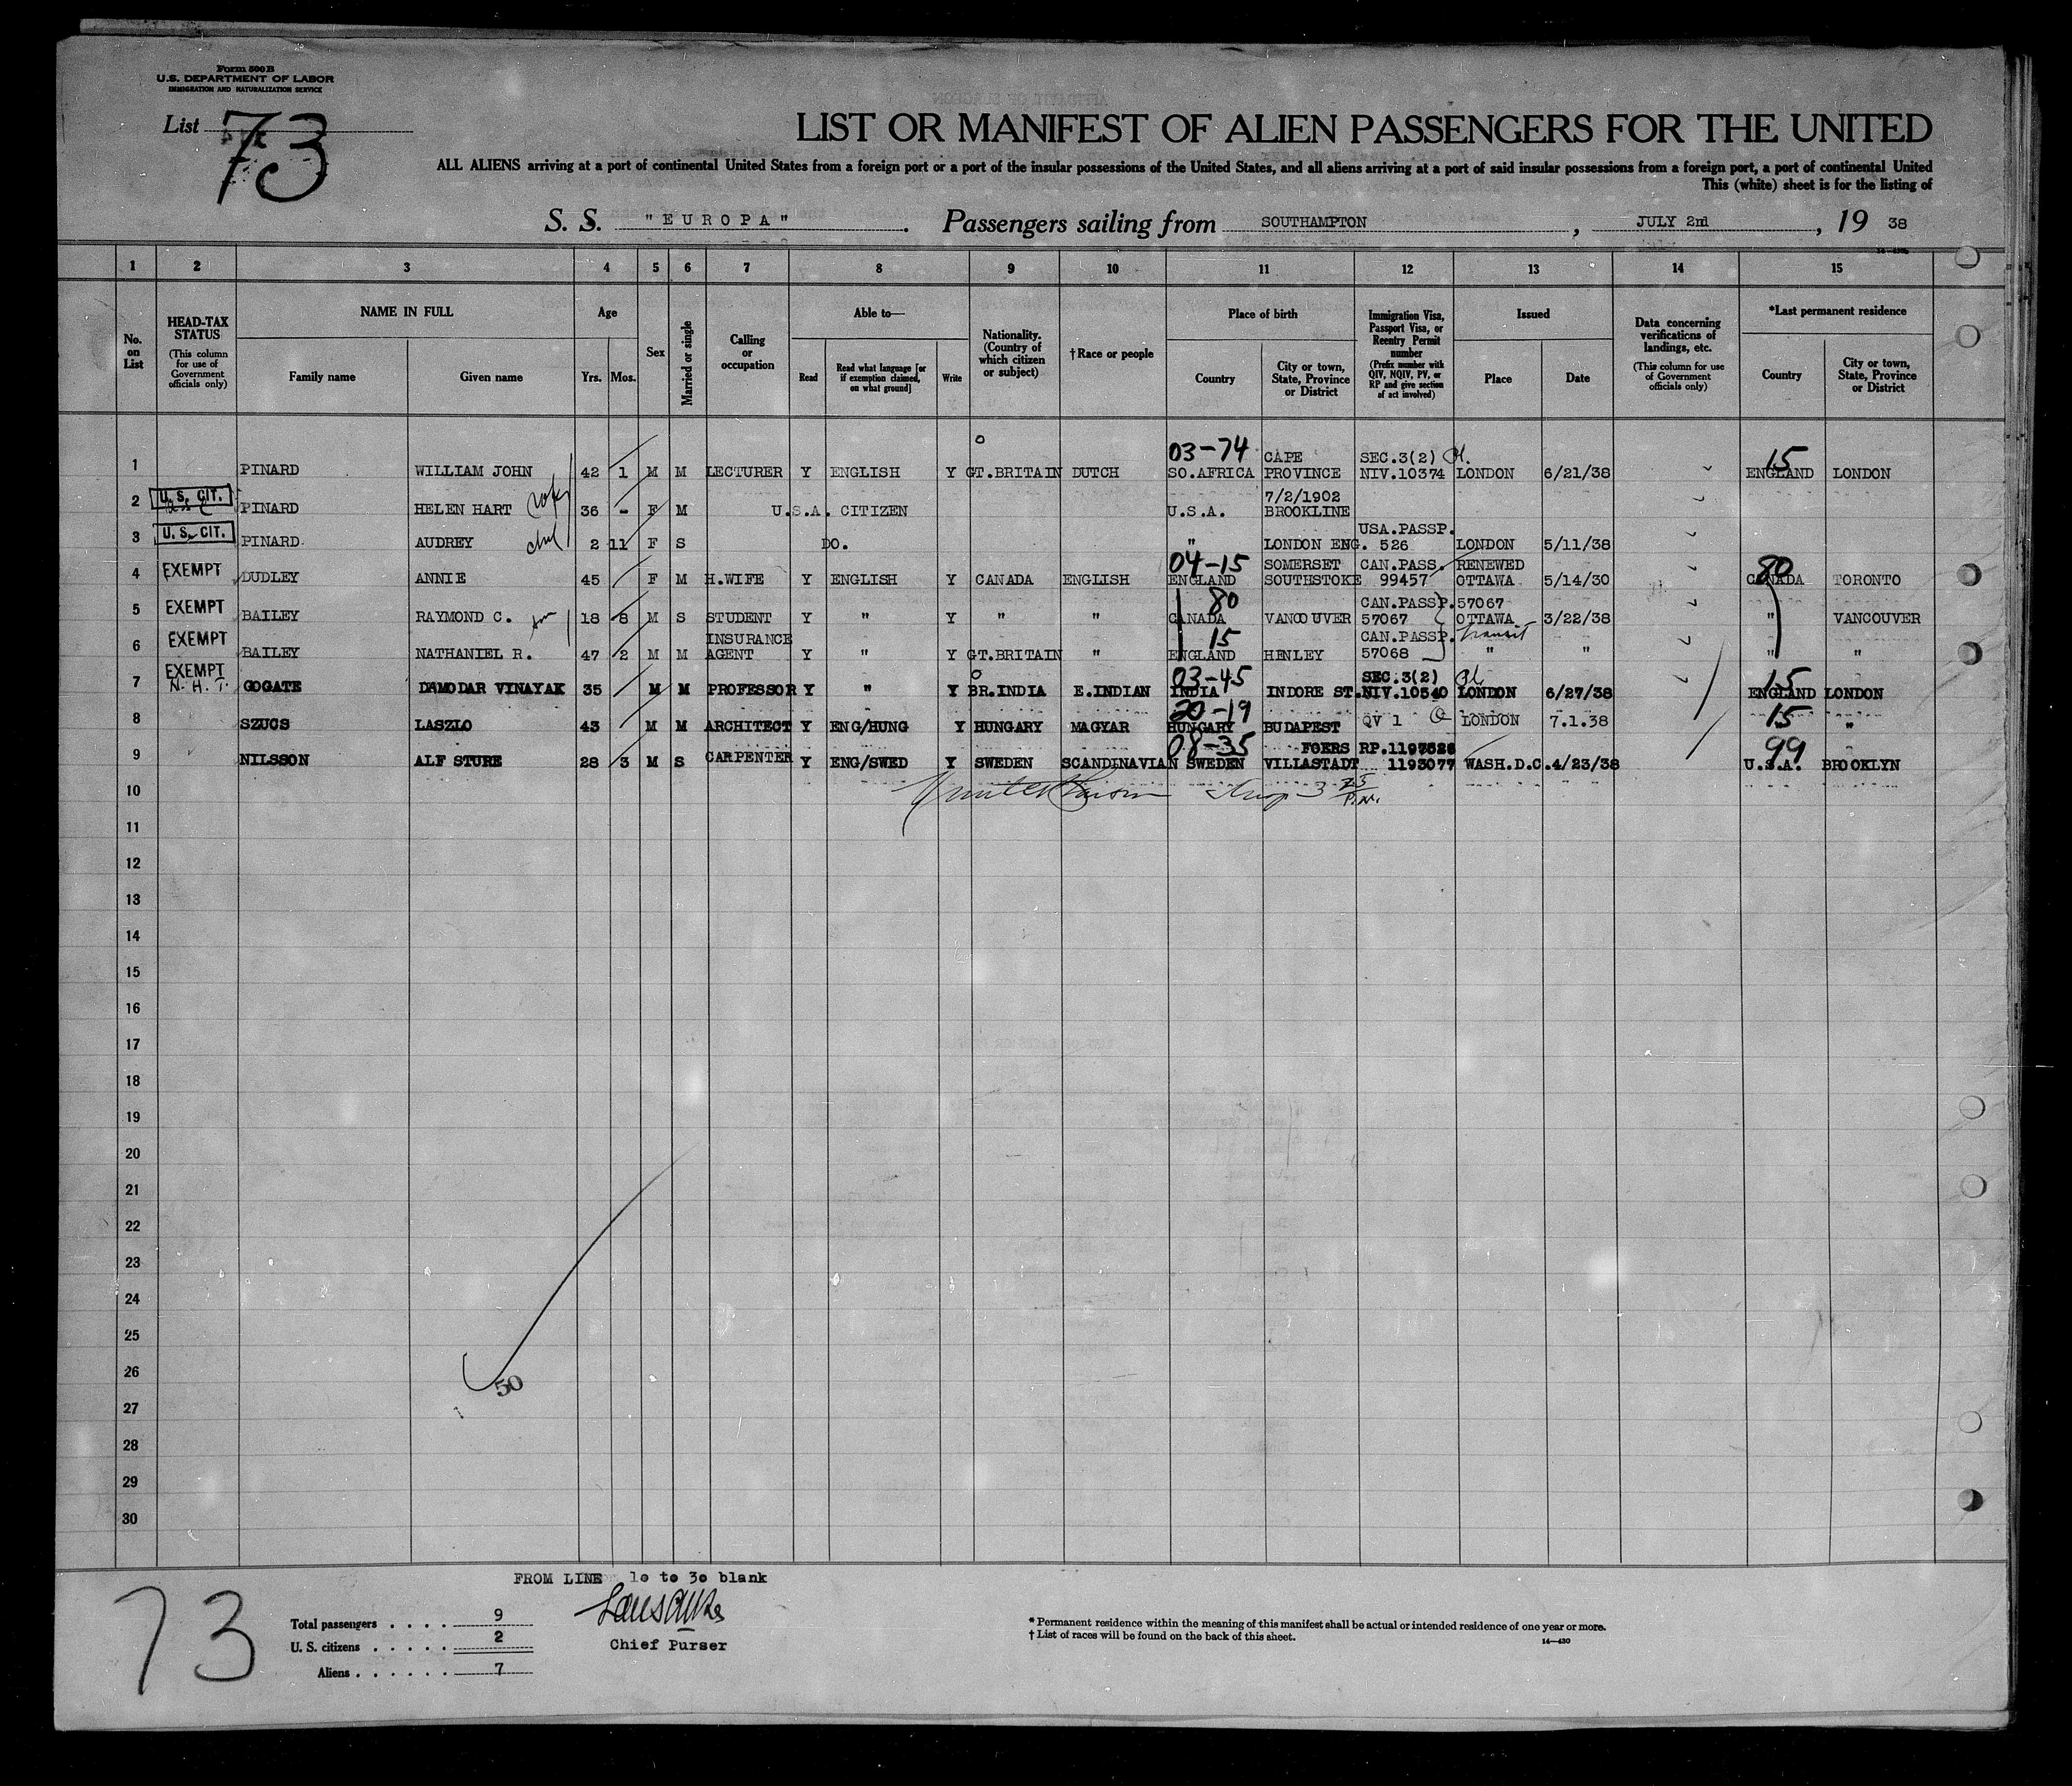 Form 500 B
U.S. DEPARTMENT OF LABOR
IMMIGRATION AND NATURALIZATION SERVICE
List 73
LIST OR MANIFEST OF ALIEN PASSENGERS FOR THE UNITED
ALL ALIENS arriving at a port of continental United States from a foreign port or a port of the insular possessions of the United States, and all aliens arriving at a port of said insular possessions from a foreign port, a port of continental United
This (white) sheet is for the listing of
S. S. "EUROPA". Passengers sailing from SOUTHAMPTON, JULY 2nd, 19 38
1 2 3 4 5 6 7 8 9 10 11 12 13 14 15
No. on List
HEAD-TAX STATUS
(This column for use of Government officials only)
NAME IN FULL
Family name Given name
Age
Yrs. Mos.
Sex
Married or single
Calling or occupation
Able to—
Read
Read what language [or if exemption claimed, on what ground]
Write
Nationality. (Country of which citizen or subject)
†Race or people
Place of birth
Country
City or town, State, Province or District
Immigration Visa, Passport Visa, or Reentry Permit number
(Prefix number with QIV, NQIV, PV, or RP and give section of act involved)
Issued
Place Date
Data concerning verifications of landings, etc.
(This column for use of Government officials only)
*Last permanent residence
Country
City or town, State, Province or District
03-74 CAPE SEC.3(2) 15
1 PINARD WILLIAM JOHN 42 1 M M LECTURER Y ENGLISH Y GT.BRITAIN DUTCH SO.AFRICA PROVINCE NIV.10374 LONDON 6/21/38 ENGLAND LONDON
U.S. CIT. 7/2/1902
2 PINARD HELEN HART 36 - F M U.S.A. CITIZEN U.S.A. BROOKLINE
U.S. CIT. USA.PASSP.
3 PINARD AUDREY 2 11 F S DO. " LONDON ENG. 526 LONDON 5/11/38
EXEMPT 04-15 SOMERSET CAN.PASS. RENEWED 80
4 DUDLEY ANNIE 45 F M H.WIFE Y ENGLISH Y CANADA ENGLISH ENGLAND SOUTHSTOKE 99457 OTTAWA 5/14/30 CANADA TORONTO
EXEMPT 80 CAN.PASSP. 57067
5 BAILEY RAYMOND C. 18 8 M S STUDENT Y " Y " " CANADA VANCOUVER 57067 OTTAWA 3/22/38 " VANCOUVER
EXEMPT INSURANCE 15 CAN.PASSP. Transit
6 BAILEY NATHANIEL R. 47 2 M M AGENT Y " Y GT.BRITAIN " ENGLAND HENLEY 57068 " " " "
EXEMPT 03-45 SEC.3(2) 15
7 N.H.T. GOGATE DAMODAR VINAYAK 35 M M PROFESSOR Y " Y BR.INDIA E.INDIAN INDIA INDORE ST. NIV.10540 LONDON 6/27/38 ENGLAND LONDON
20-19 15
8 SZUCS LASZLO 43 M M ARCHITECT Y ENG/HUNG Y HUNGARY MAGYAR HUNGARY BUDAPEST QV 1 LONDON 7.1.38 " "
08-35 FOERS RP.1197526 99
9 NILSSON ALF STURE 28 3 M S CARPENTER Y ENG/SWED Y SWEDEN SCANDINAVIAN SWEDEN VILLASTADT 1193077 WASH.D.C. 4/23/38 U.S.A. BROOKLYN
10
11
12
13
14
15
16
17
18
19
20
21
22
23
24
25
26
27
28
29
30
50
FROM LINE 10 to 30 blank
73
Total passengers . . . . 9
U. S. citizens . . . . . 2
Aliens . . . . . . 7
Chief Purser
* Permanent residence within the meaning of this manifest shall be actual or intended residence of one year or more.
† List of races will be found on the back of this sheet.
14—430